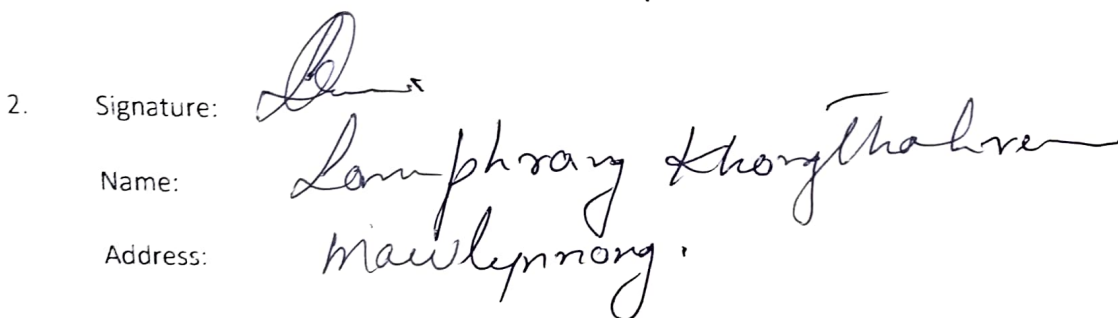 2. Signature:
Name: Lamphrang KhongThohrem
Address: Mawlynnong.